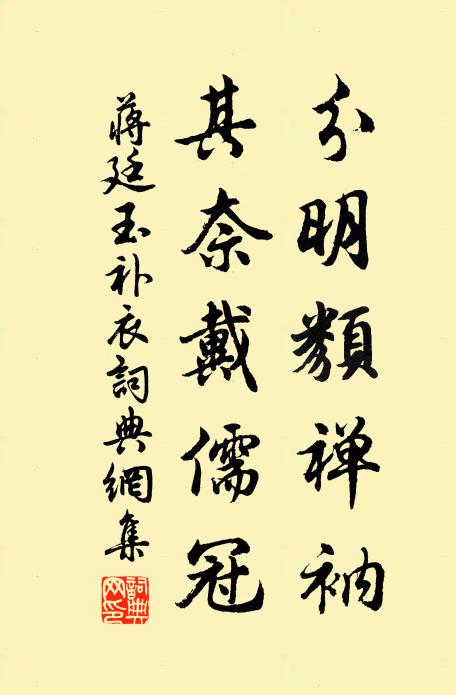 分明類禅衲
其奈戴儒冠
蒋廷玉补衣詞典網集
詞典网印